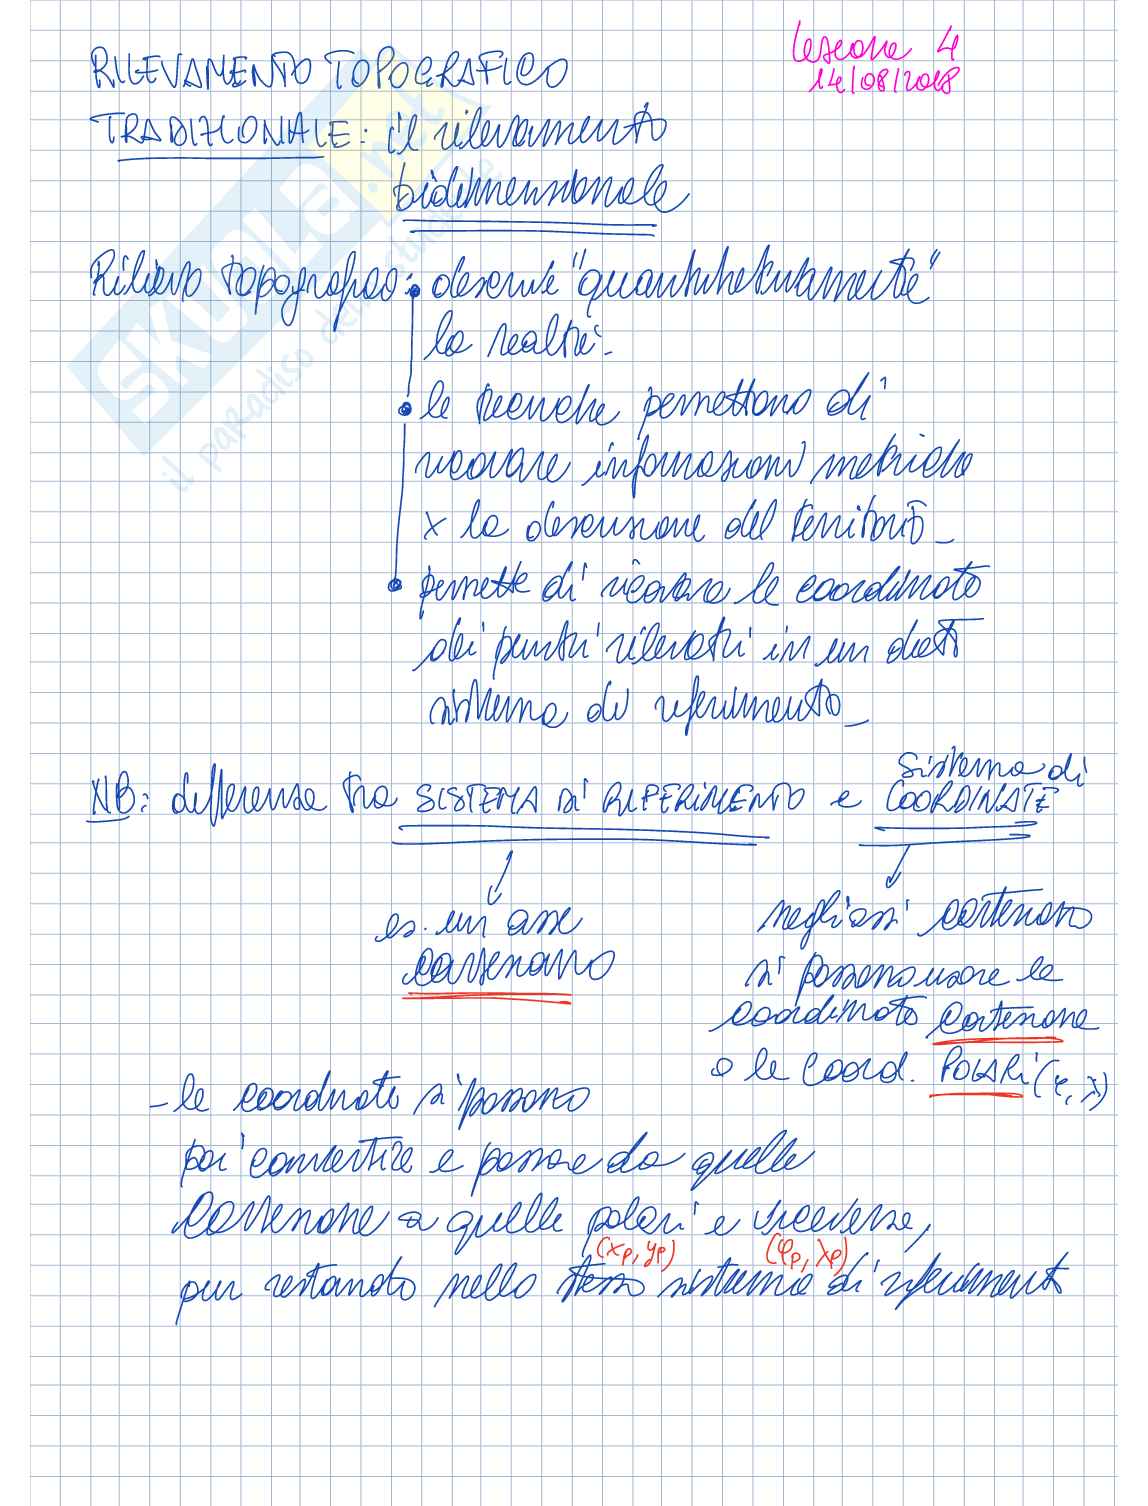 Lezione 4
14/08/2018
RILEVAMENTO TOPOGRAFICO
TRADIZIONALE: il rilevamento
bidimensionale
Rilievo topografico: • descrive "quantitativamente"
la realtà.
• le tecniche permettono di
ricavare informazioni metriche
x la descrizione del territorio_
• permette di ricavare le coordinate
dei punti rilevati in un dato
sistema di riferimento_
NB: differenza tra SISTEMA DI RIFERIMENTO e sistema di COORDINATE
es. un asse
cartesiano
negli assi cartesiani
si possono usare le
coordinate cartesiane
o le coord. POLARI (φ, λ)
- le coordinate si possono
poi convertire e passare da quelle
cartesiane a quelle polari e viceversa,
(xp, yp) (φp, λp)
pur restando nello stesso sistema di riferimento
SKUOLA.net
il paradiso dello studente